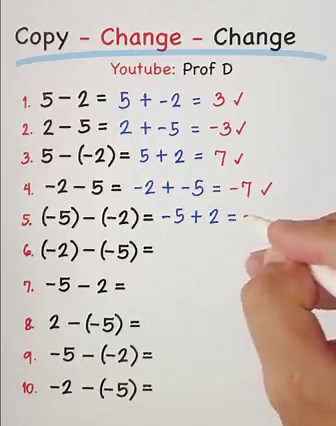 Copy - Change - Change
Youtube: Prof D
1. 5 - 2 = 5 + -2 = 3 ✓
2. 2 - 5 = 2 + -5 = -3 ✓
3. 5 - (-2) = 5 + 2 = 7 ✓
4. -2 - 5 = -2 + -5 = -7 ✓
5. (-5) - (-2) = -5 + 2 = -
6. (-2) - (-5) =
7. -5 - 2 =
8. 2 - (-5) =
9. -5 - (-2) =
10. -2 - (-5) =